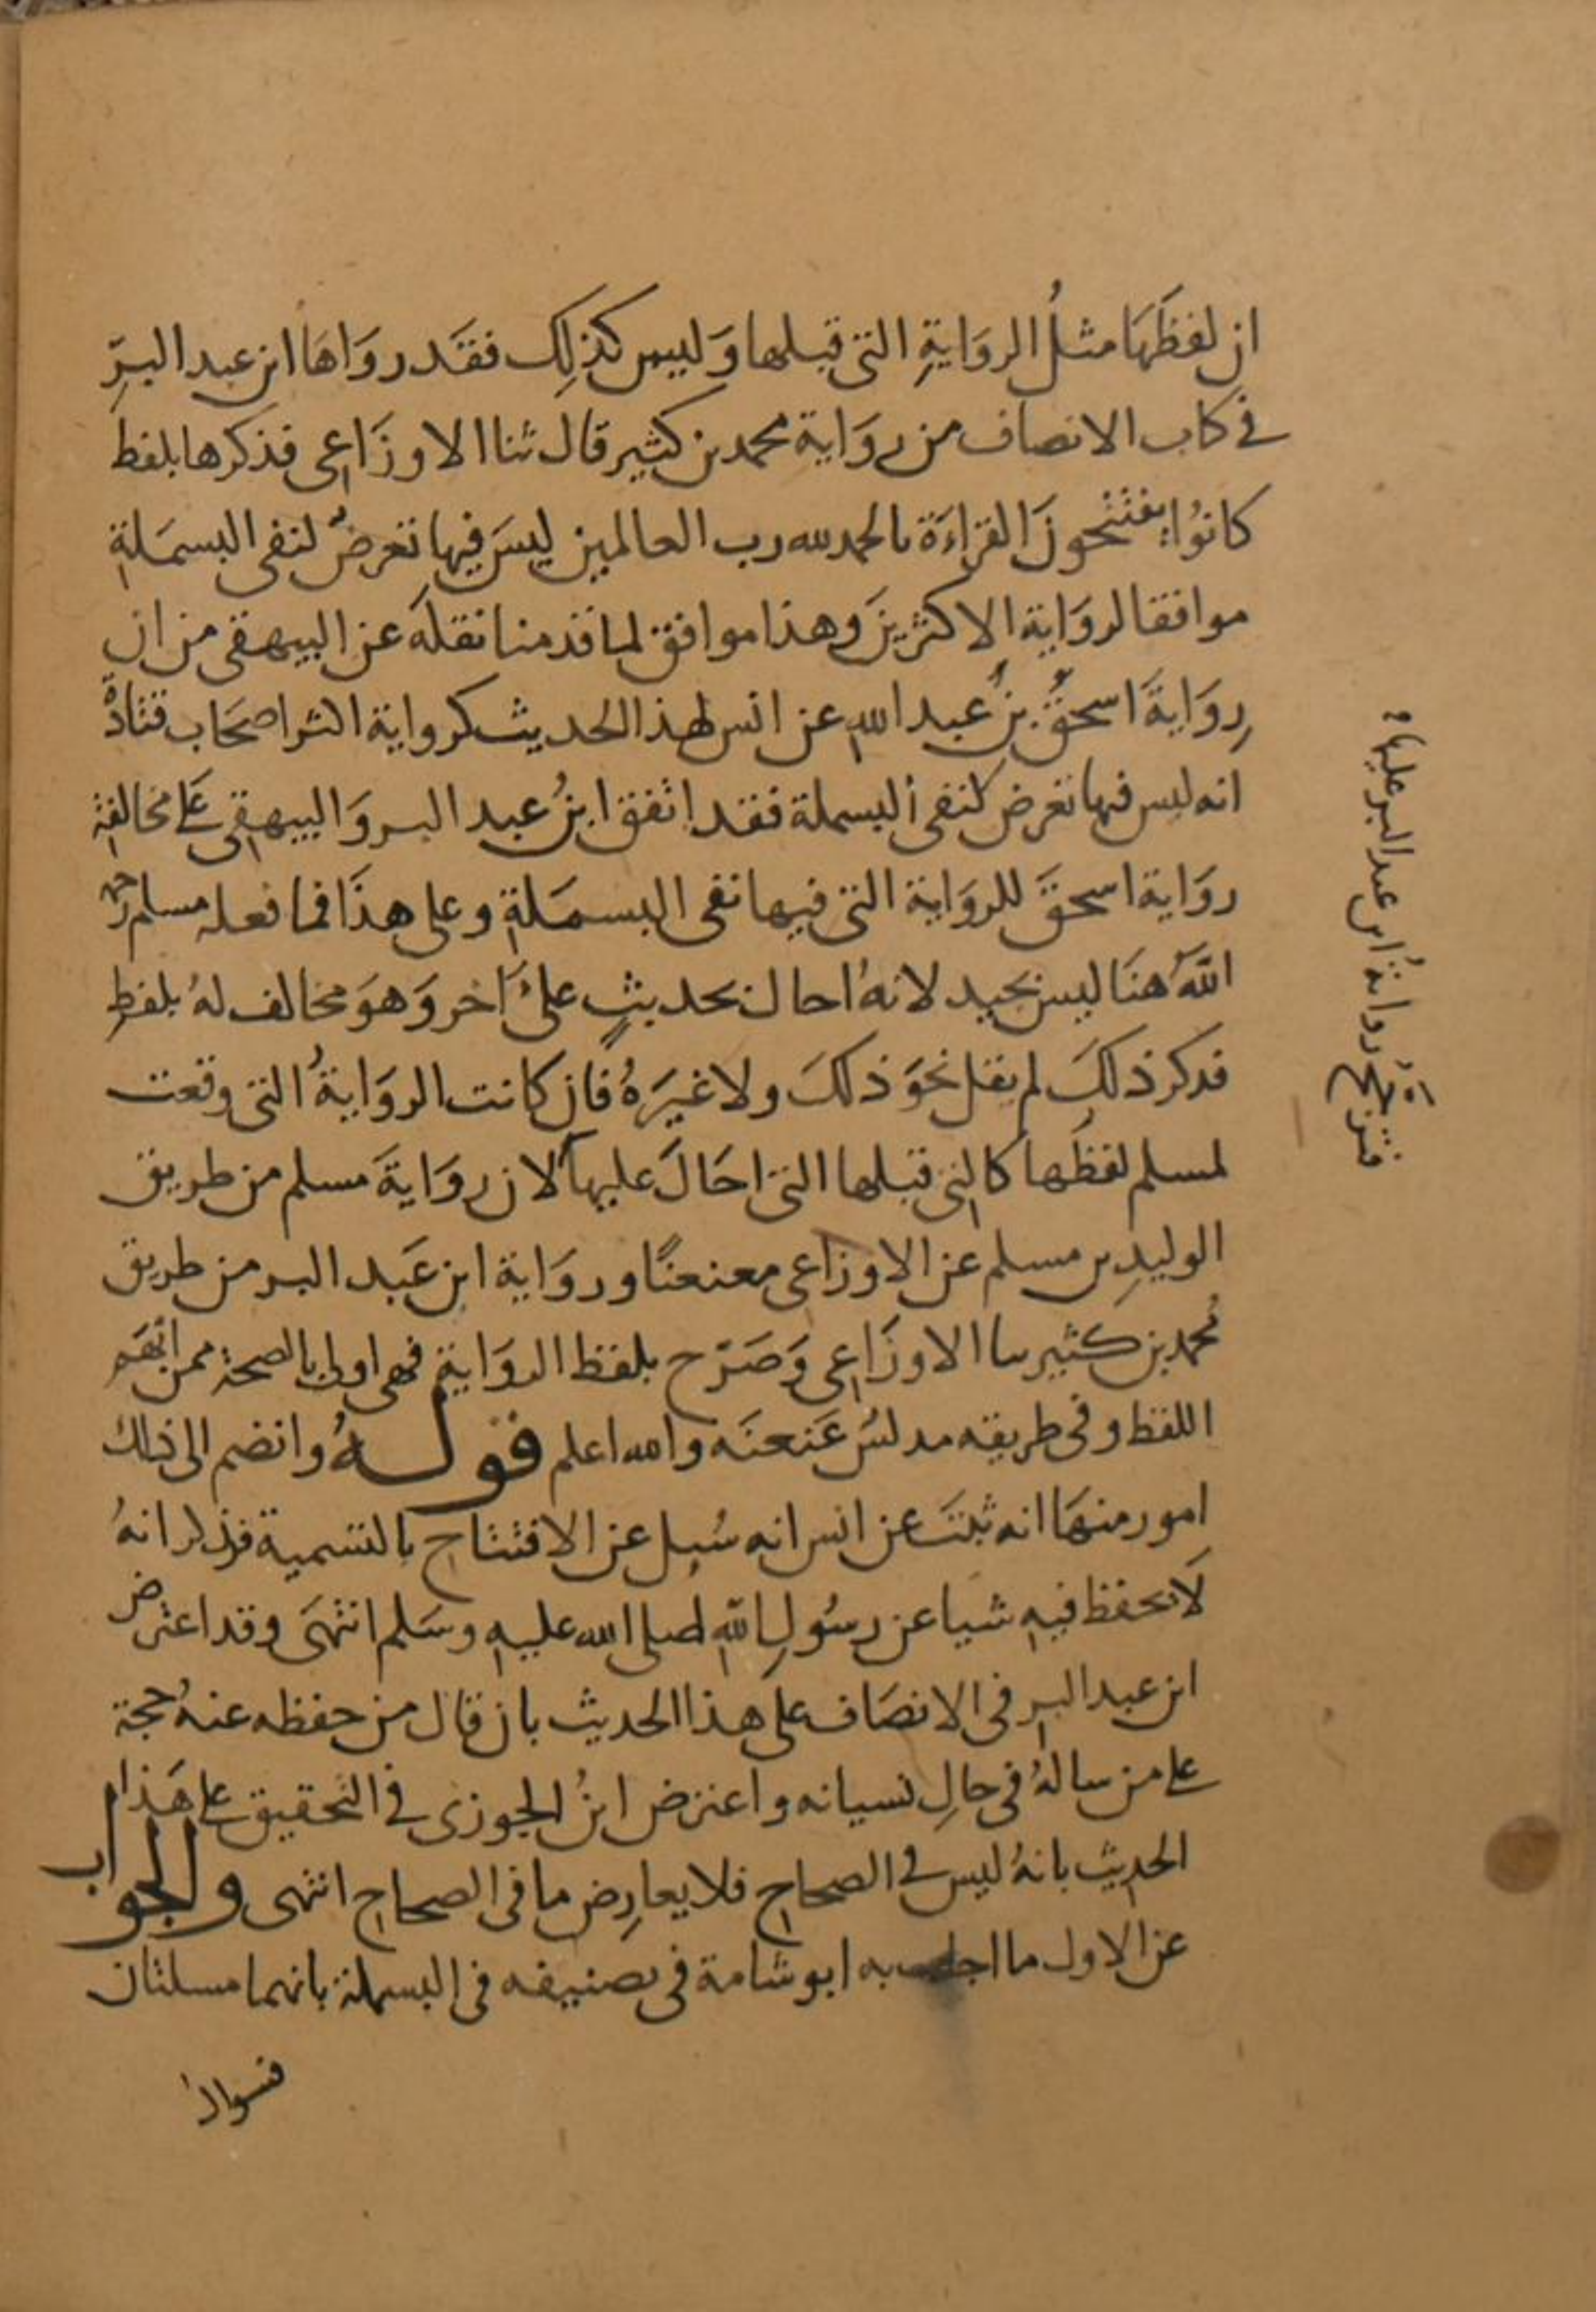 ان لفظَهَا مثلُ الروَايةِ التي قبلها وَليس كذلِك فقَد روَاهَا ابن عبد البرّ
في كتاب الانصاف من روَاية محمد بن كثير قال ثنا الاوزَاعي فذكرها بلفظ
كانوُا يفتتحونَ القراءَة بالحمد لله رب العالمين ليسَ فيها تعرضٌ لنفي البسمَلةِ
موافقا لروَاية الاكثرينَ وهذا موافق لما قدمنا نقلَه عن البيهقي من ان
رِوَايةَ اسحقَ بنُ عبد اللهِ عن انس لهذا الحديث كرواية اكثر اصحَاب قتادةَ
انه ليس فيها تعرض لنفي البسملة فقد اتفق ابنُ عبد البر وَالبيهقي على مخالفة
روَاية اسحقَ للروَاية التي فيها نفي البسمَلةِ وعلى هذَا فما فعله مسلم رحمه
اللهُ هنَا ليس بجيد لانهُ احال بحديثٍ علىَ اخر وَهوَ مخالف لهُ بلفظِ
فذكر ذلكَ لم يقل نحوَ ذلكَ ولا غيرَهُ فان كانت الروَايةُ التي وقعت
لمسلم لفظَها كالتي قبلها التي احَالَ عليها لان روَايةَ مسلم من طريق
الوليدِ بن مسلم عن الاوزاعي معنعنًا وروَاية ابن عَبد البر من طريق
مُحمد بن كثير ثنا الاوزَاعي وَصَرّح بلفظ الروَايةِ فهي اولى بالصحة ممن ابهَم
اللفظ وفي طريقه مدلسُ عَنعنَه والله اعلم قولـــهُ وانضم الى ذلك
امور منهَا انه ثبتَ عن انس انه سُيل عن الافتتاح بالتسمية فذكر انهُ
لَا يحفظ فيهِ شيا عن رسُولِ اللهِ صلى الله عليهِ وسَلم انتهَى وقد اعترض
ابن عبد البر في الانصَاف على هذا الحديث بان قال من حفظه عنهُ حجة
على من سالهُ في حالِ نسيانه واعترض ابنُ الجوزي في التحقيق على هَذا
الحديث بانهُ ليس في الصحاح فلا يعارِض ما في الصحاح انتهى والجواب
عن الاول ما اجاب به ابو شامة في تصنيفه في البسملة بانهما مسلتان
فسوال
فترجح روايةُ ابن عبد البر عليها